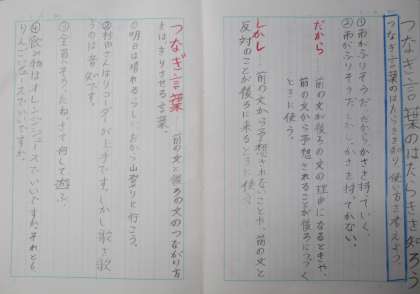 つなぎ言葉のはたらきを知ろう
つなぎ言葉のはたらきを知り、使い方を考えよう。
①雨がふりそうだ。だから、かさを持っていく。
②雨がふりそうだ。しかし、かさを持っていかない。
だから…前の文が後ろの文の理由になるときや、
前の文から予想されることが後ろにつづく
ときに使う。
しかし…前の文から予想されないことや、前の文と
反対のことが後ろに来るときに使う。
つなぎ言葉…前の文と後ろの文のつながり方
をはっきりさせる言葉。
①明日は晴れるらしい。だから山登りに行こう。
②村田さんはリコーダーが上手です。しかし歌を歌
うのは
③全員そろったね。さて、何して遊ぶ。
④飲み物はオレンジジュースでいいですか。それとも、
りんごジュースでいいですか。